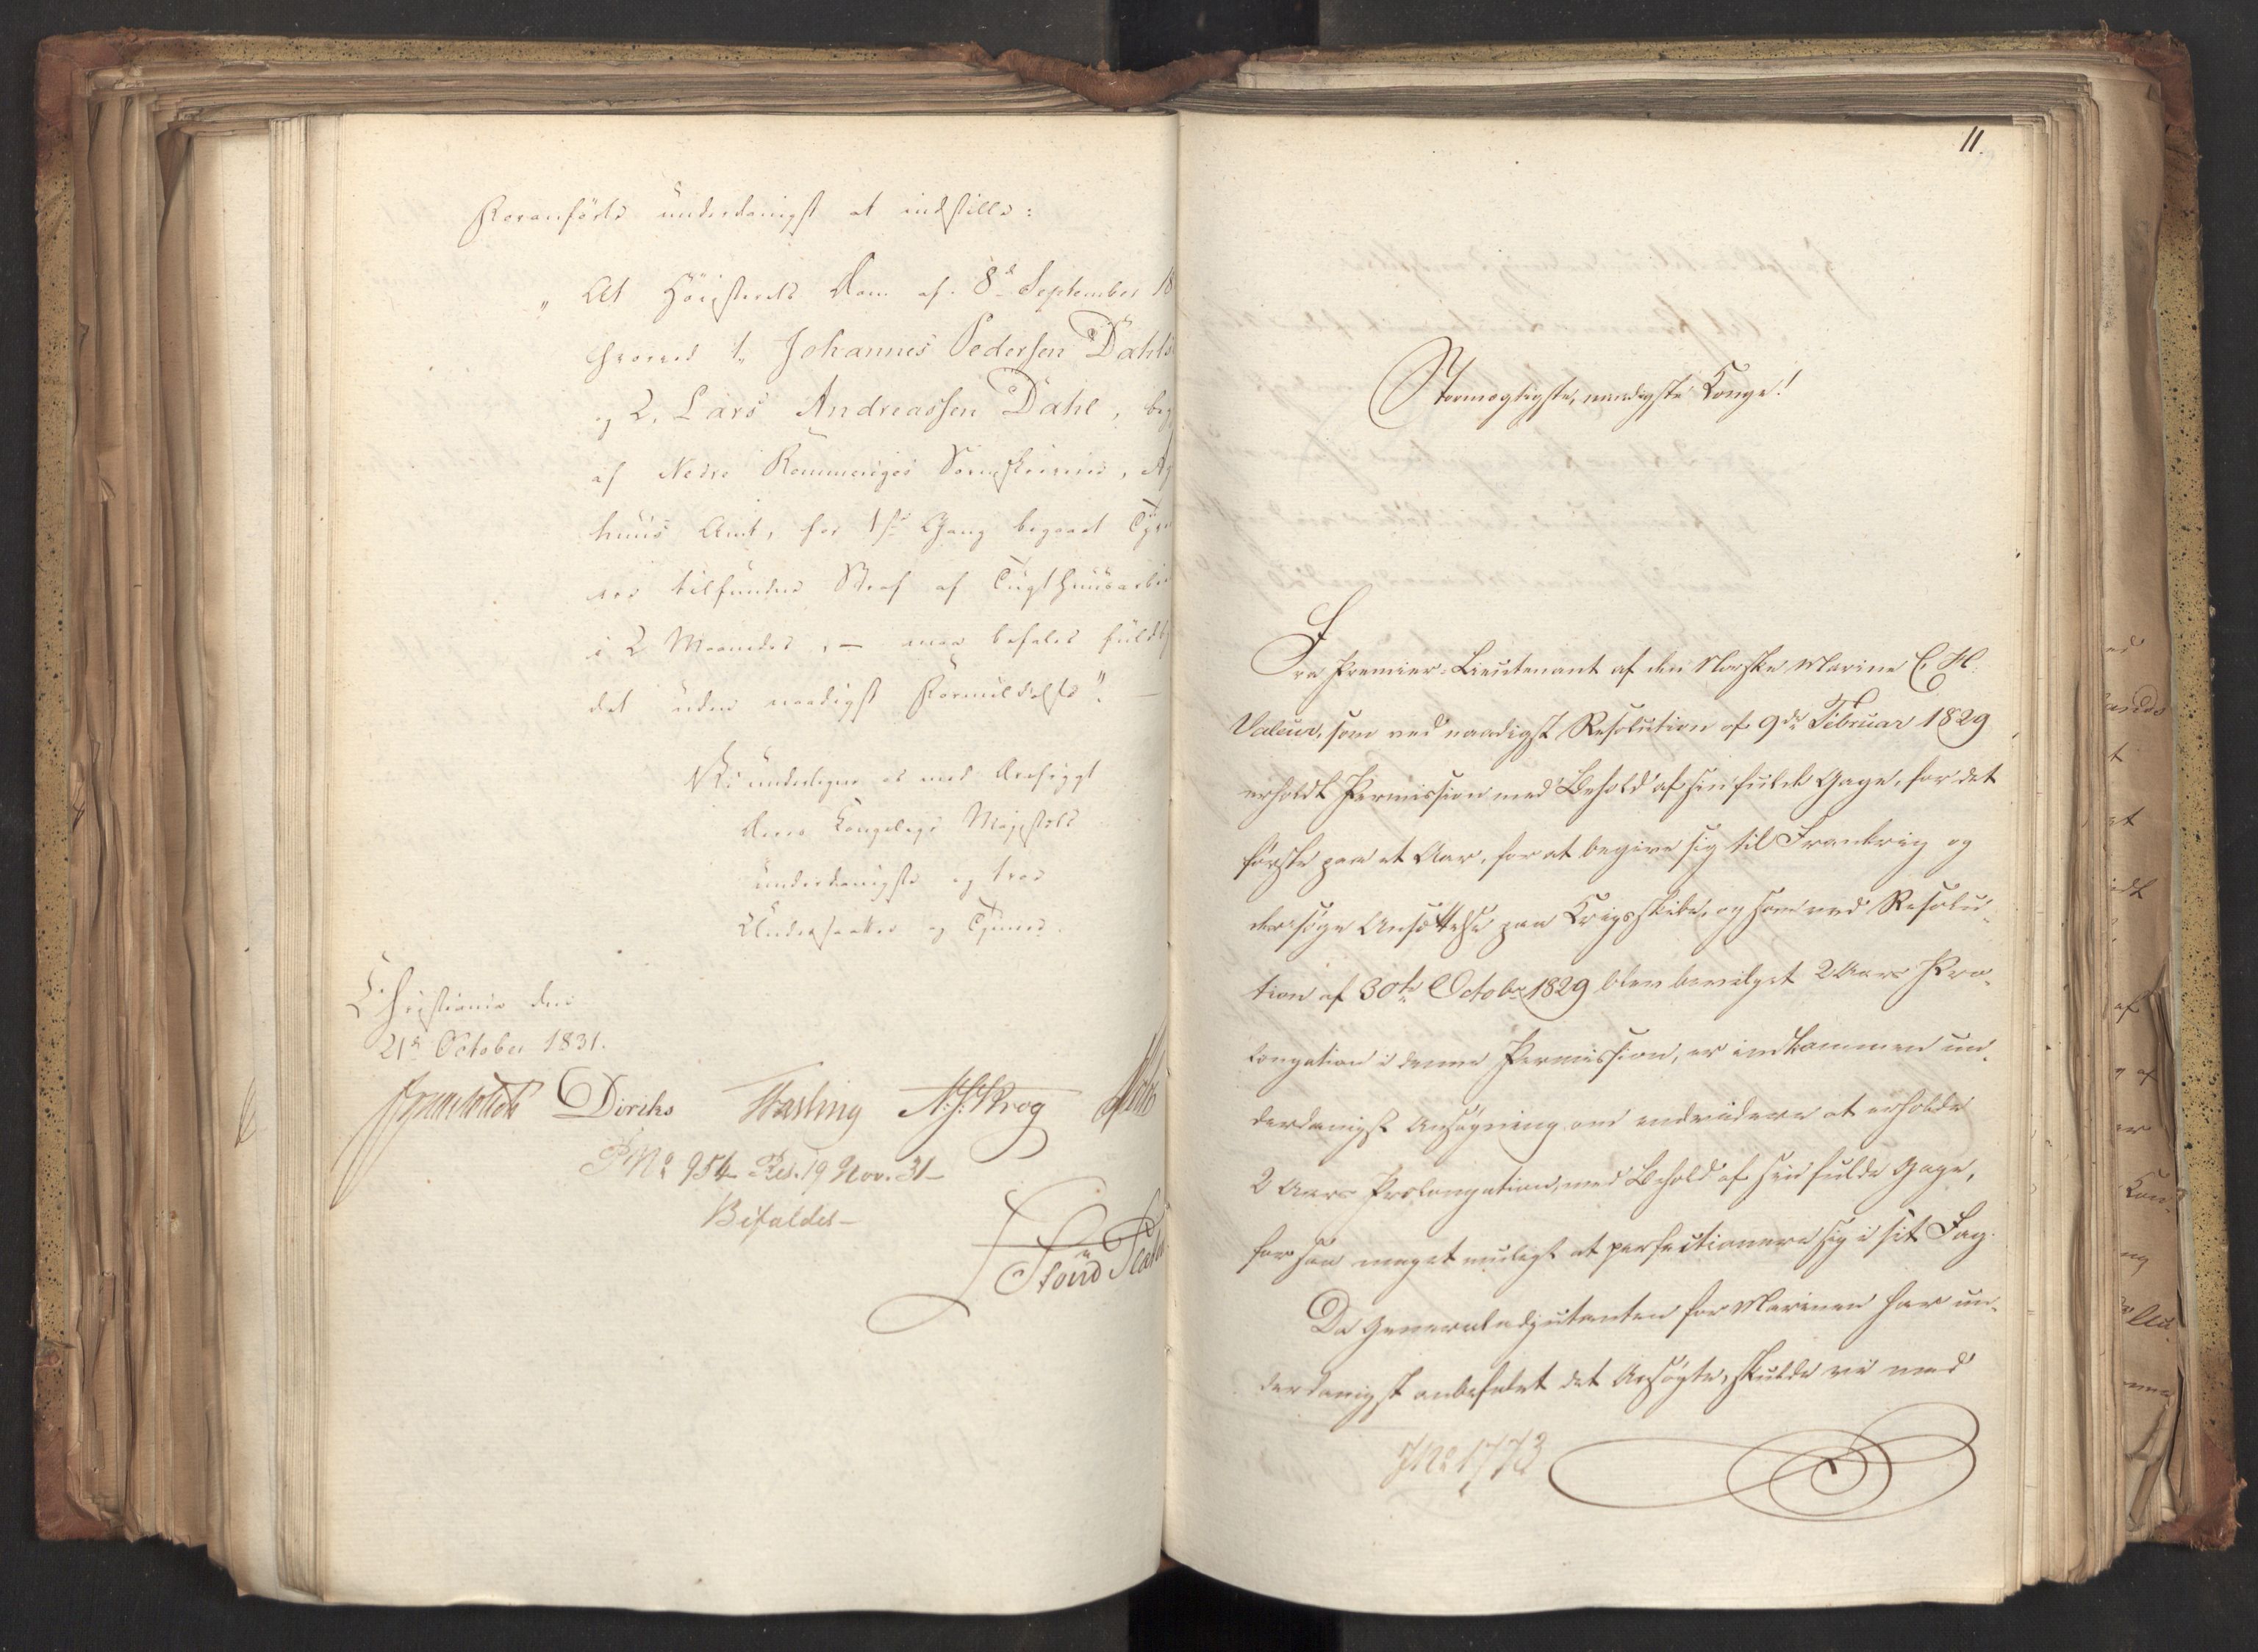 Foranførte underdanigst at indstille:
„ At Høiesterets Dom af 8de September 18
hvorved 1, Johannes Pedersen Dahls
og 2, Lars Andreassen Dahl,
af Nedre Rommeriges Sorenskriverie, Ag
huus Amt, for 1ste Gang begaaet Tyv
ere tilfundne Straf af Tugthuusarbei
i 2 Maaneder, – maa befales fuldby
det uden naadigst Formildelse". –
Vi undertegne os med Ærefrygt
Deres Kongelige Majestæts
underdanigste og troe
Undersaatter og Tjenere.
Christiania den
21de October 1831.
Diriks Fasting M. S. Krog
PNo 954 Res. 19 Nov. 31–
Bifaldes–
11.
Stormægtigste, naadigste Konge!
Fra Premier-Lieutenant af den Norske Marine C. H.
Valeur, som ved naadigst Resolution af 9de Februar 1829
erholdt Permission med Behold af sin fulde Gage, for det
første paa et Aar, for at begive sig til Frankrig og
der søge Ansættelse paa Krigsskibe, og som ved Resolu-
tion af 30te Octobr 1829 blev bevilget 2 Aars Pro-
longation i denne Permission, er indkommen un-
derdanigst Ansøgning om endvidere at erholde
2 Aars Prolongation, med Behold af sin fulde Gage,
for saa meget muligt at perfectionere sig i sit Fag.
Da Generaladjutanten for Marinen har un-
derdanigst anbefalet det Ansøgte, skulde vi med
JNo 1773